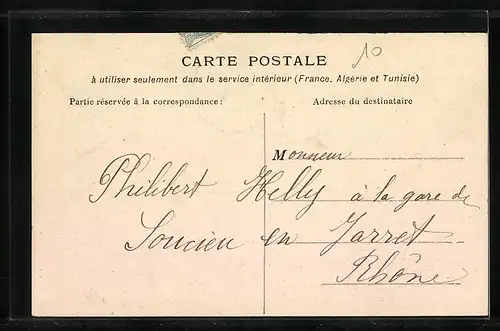 10
CARTE POSTALE
à utiliser seulement dans le service intérieur (France, Algérie et Tunisie)
Partie réservée à la correspondance :
Adresse du destinataire
Monsieur
Philibert Helly à la gare de
Soucieu en Jarret
Rhône